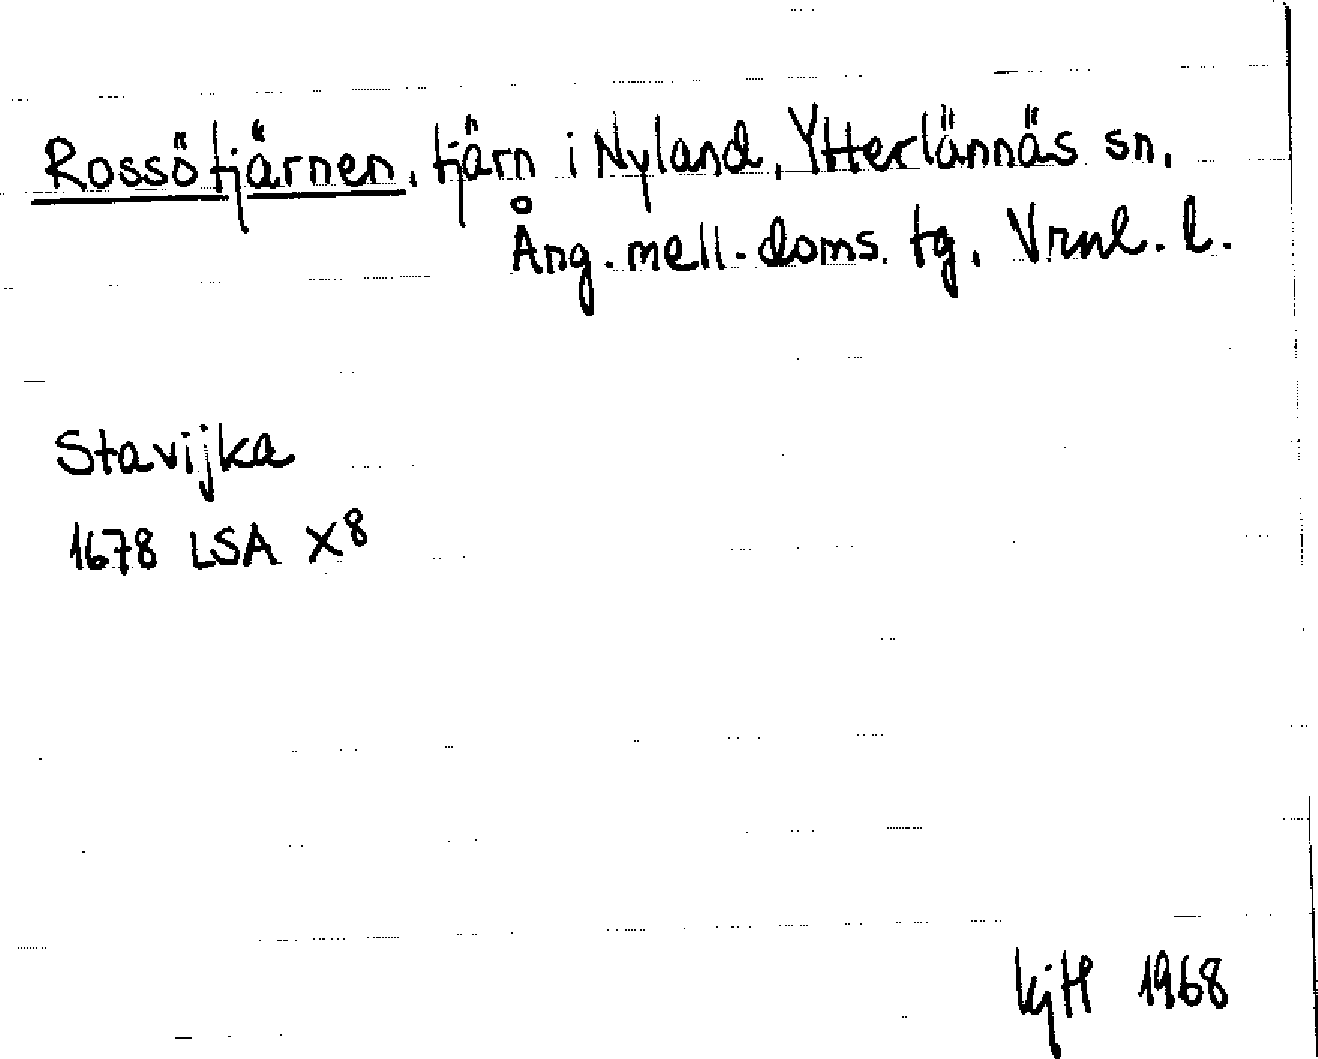 Rossötjärnen, tjärn i Nyland, Ytterlännäs sn.
Ång. mell. doms. tg, Vrnl. l.
Stavijka
1678 LSA X8
KjH 1968